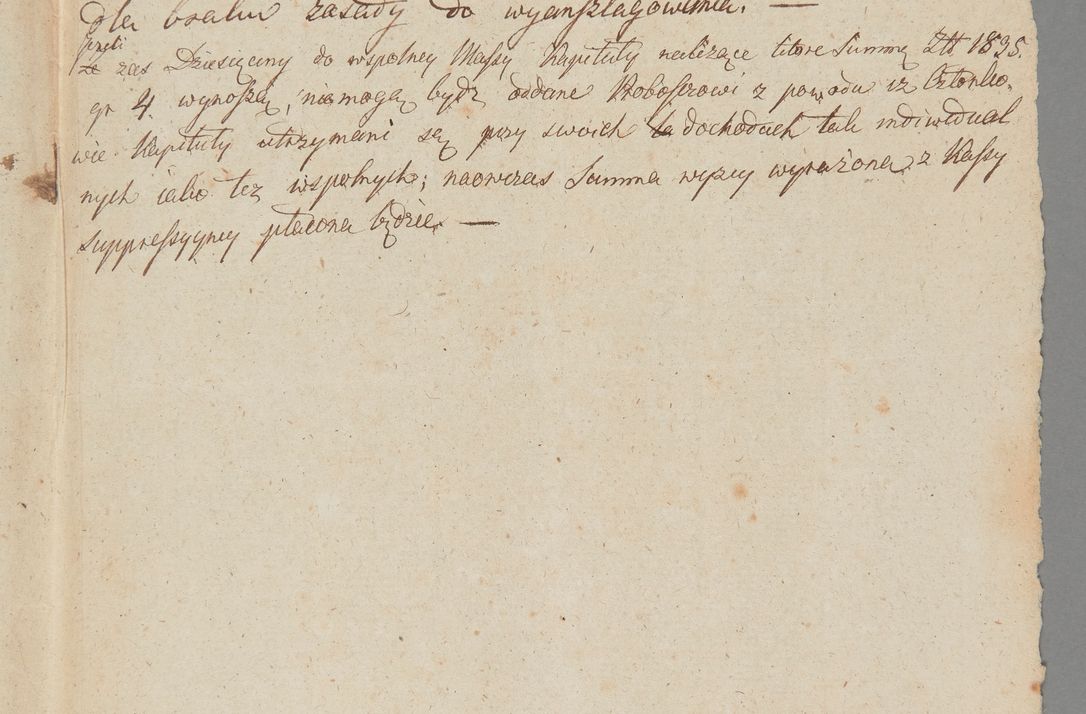 dla braku zasady do wyanszlagowania. —
jeżeli
że zas Dziesięciny do wspolney Massy Kapituły należące które Summę Złł 1835.
gr 4. wynoszą, niemogą bydź oddane Proboszczowi z powodu iż Członko-
wie Kapituły utrzymani są przy swoich do dochodach tak indiwidual
nych iako też wspolnych; naowczas Summa wyżey wyrażona z Kassy
suppressyyney płacona będzie. —